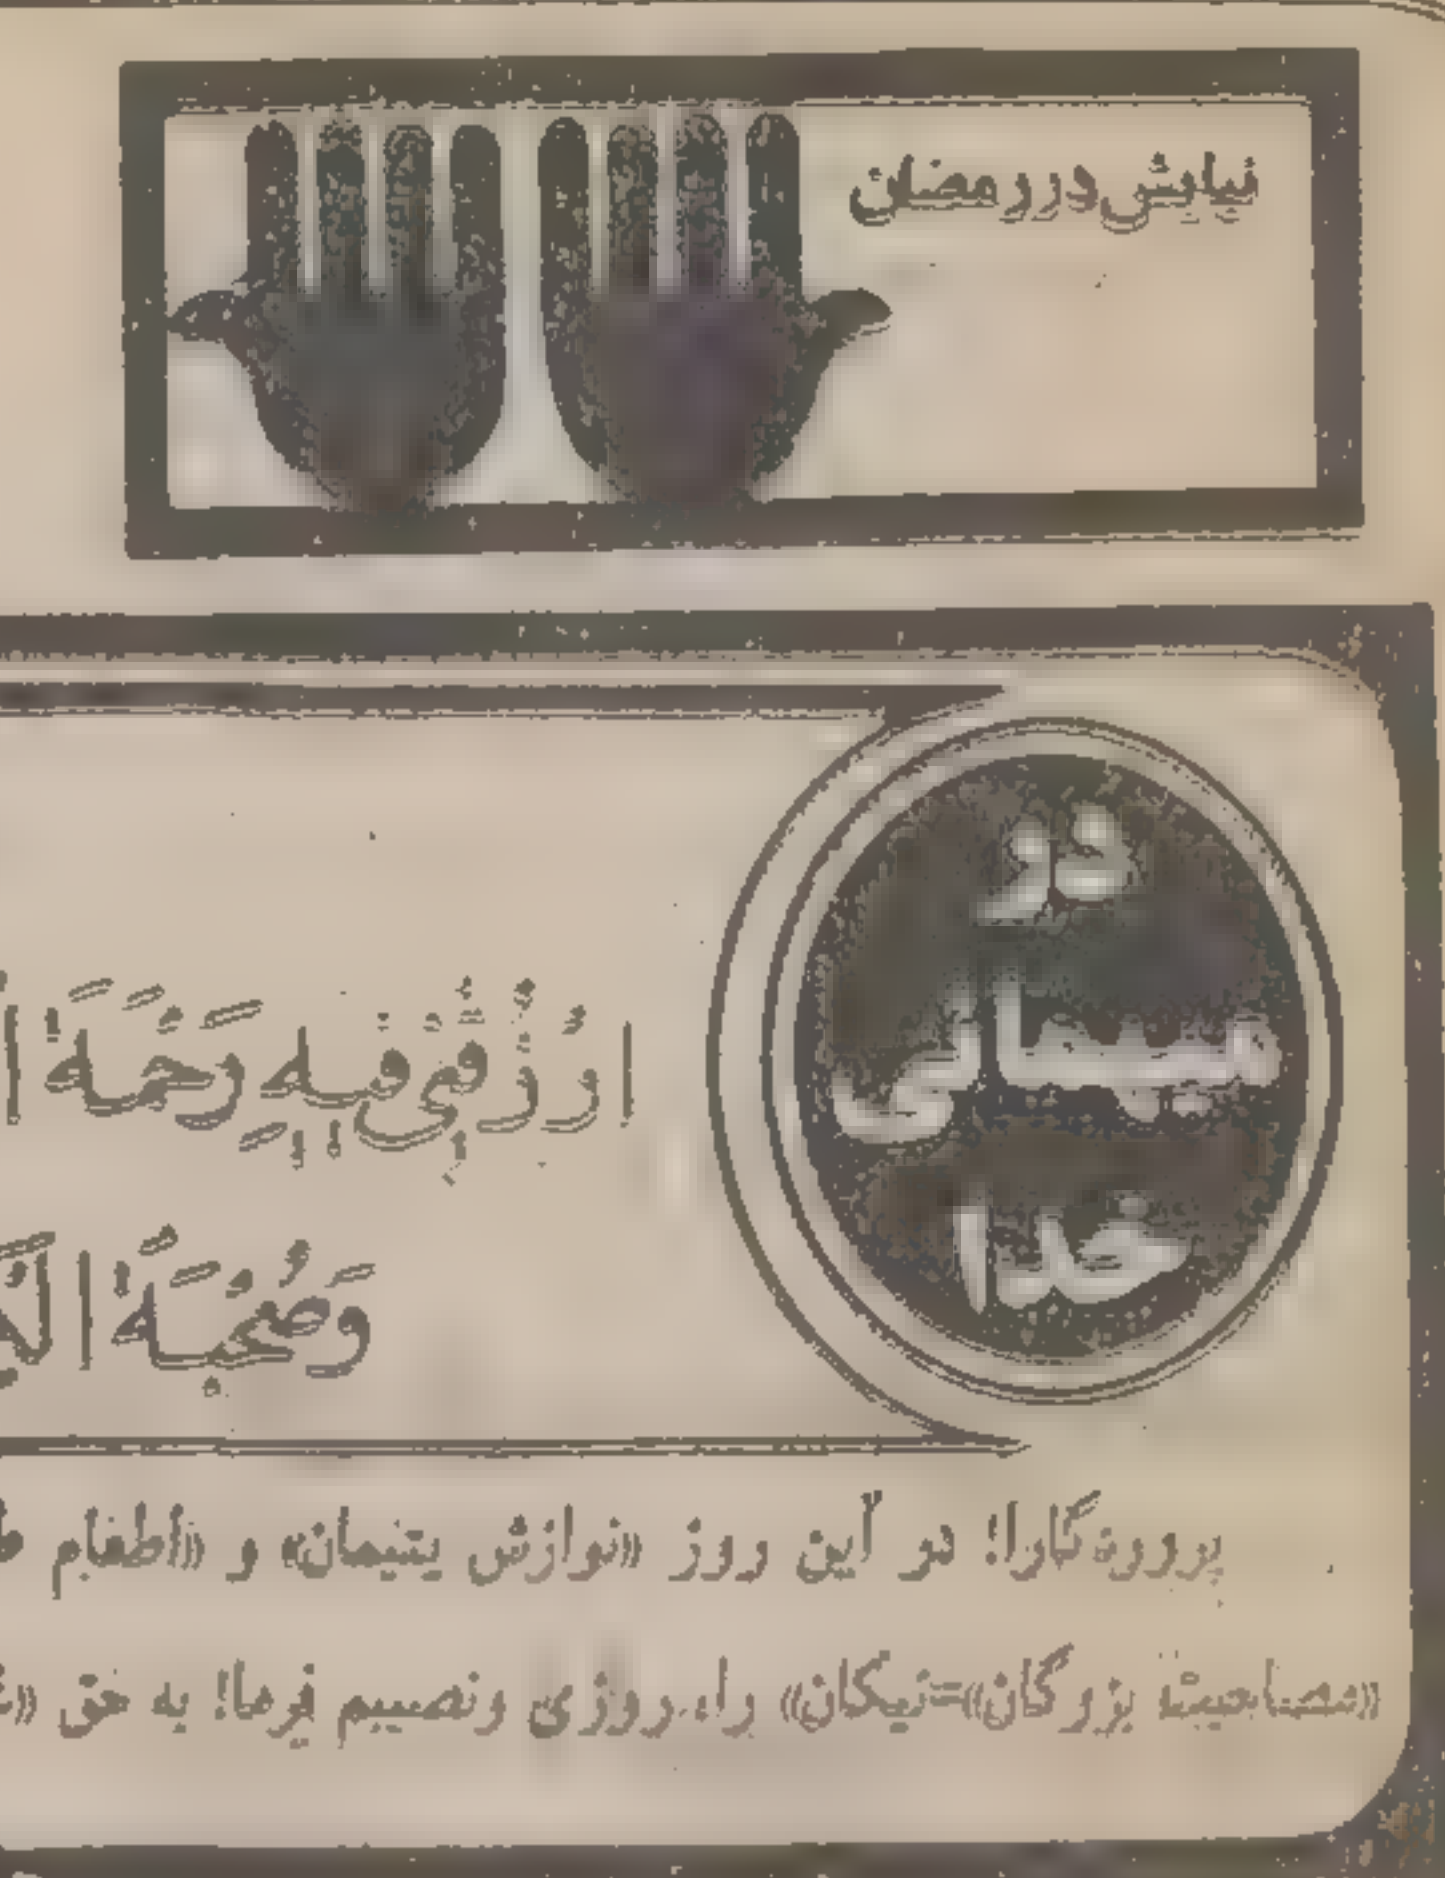 نیایش در رمضان
در
میهمانی
خدا
ارْزُقْنی فیهِ رَحْمَةَ
وَصُحْبَةَ
پروردگارا! در این روز «نوازش یتیمان» و «اطعام
«مصاحبت بزرگان»=نیکان» را، روزی ونصیبم فرما! به حق